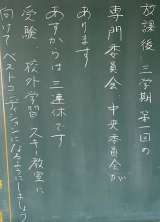 放課後 三学期第一回の
専門委員会 中央委員会が
あります
あすからは三連休です
受験 校外学習 スキー教室に
向けてベストコンディションになるようにしましょう